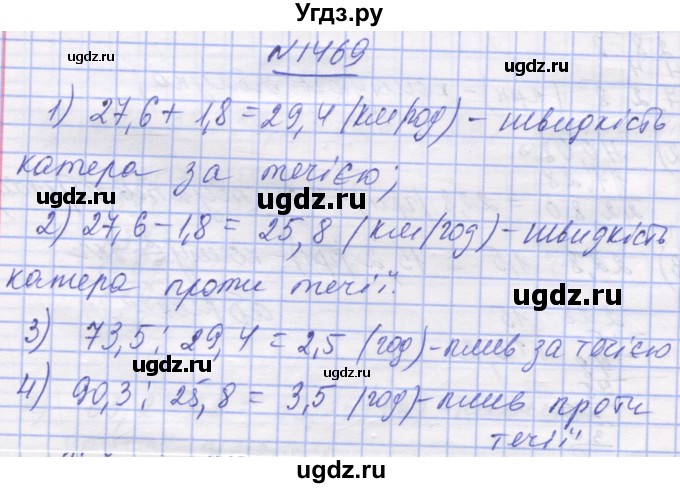 Угдз.ру
ugdz.ru ugdz.ru
№1469
ugdz.ru ugdz.ru
1) 27,6 + 1,8 = 29,4 (км/год) - швидкість
катера за течією;
ugdz.ru ugdz.ru
2) 27,6 - 1,8 = 25,8 (км/год) - швидкість
ugdz.ru
катера проти течії.
ugdz.ru
3) 73,5 : 29,4 = 2,5 (год) - плив за течією
ugdz.ru ugdz.ru
4) 90,3 : 25,8 = 3,5 (год) - плив проти
течії
ugdz.ru ugdz.ru
ugdz.ru